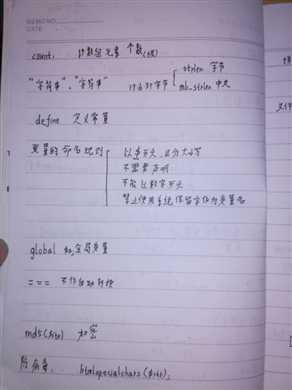 MEMO NO.
DATE
count, 计数组元素 个数(组)
"字符串", "字符串" 计算的字节 { strlen 字节
mb_strlen 中文
define 定义常量
变量的命名规则 以$开头,区分大小写
不需要声明
不能以数字开头
禁止使用系统保留字作为变量名
global 全局变量
===
md5($str) 加密
防病毒, htmlspecialchars($str),